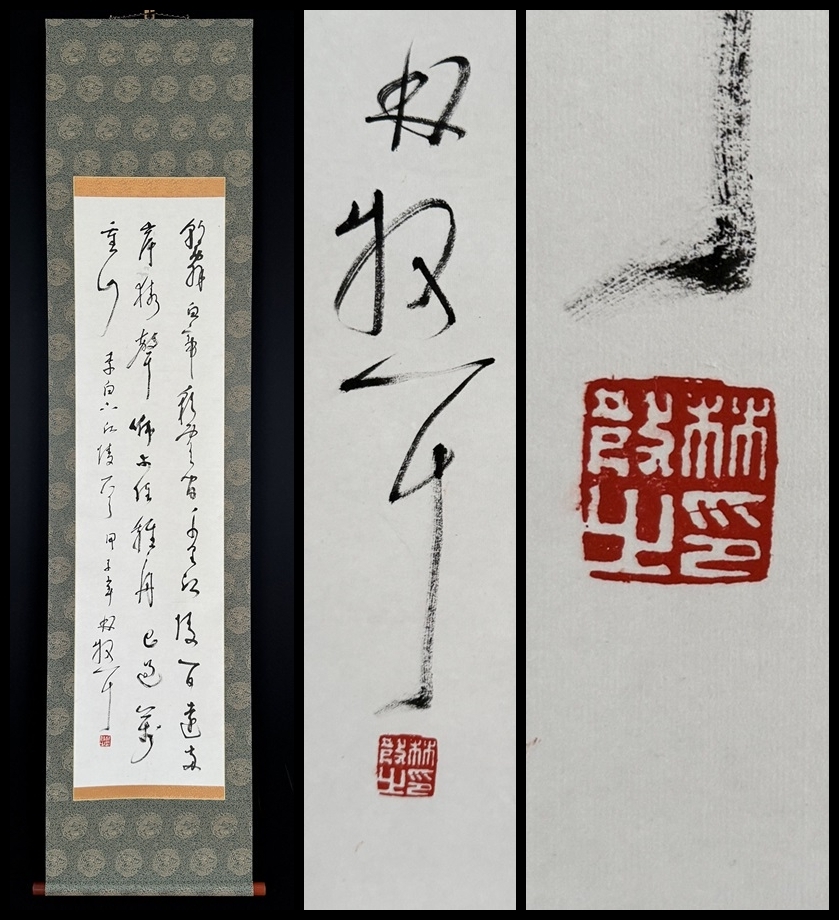 朝辭白帝彩雲間千里江陵一日還兩
岸猿聲啼不住輕舟已過萬
重山 李白下江陵 甲子年 林散耳
林散之印
林散耳
林散之印
林散之印